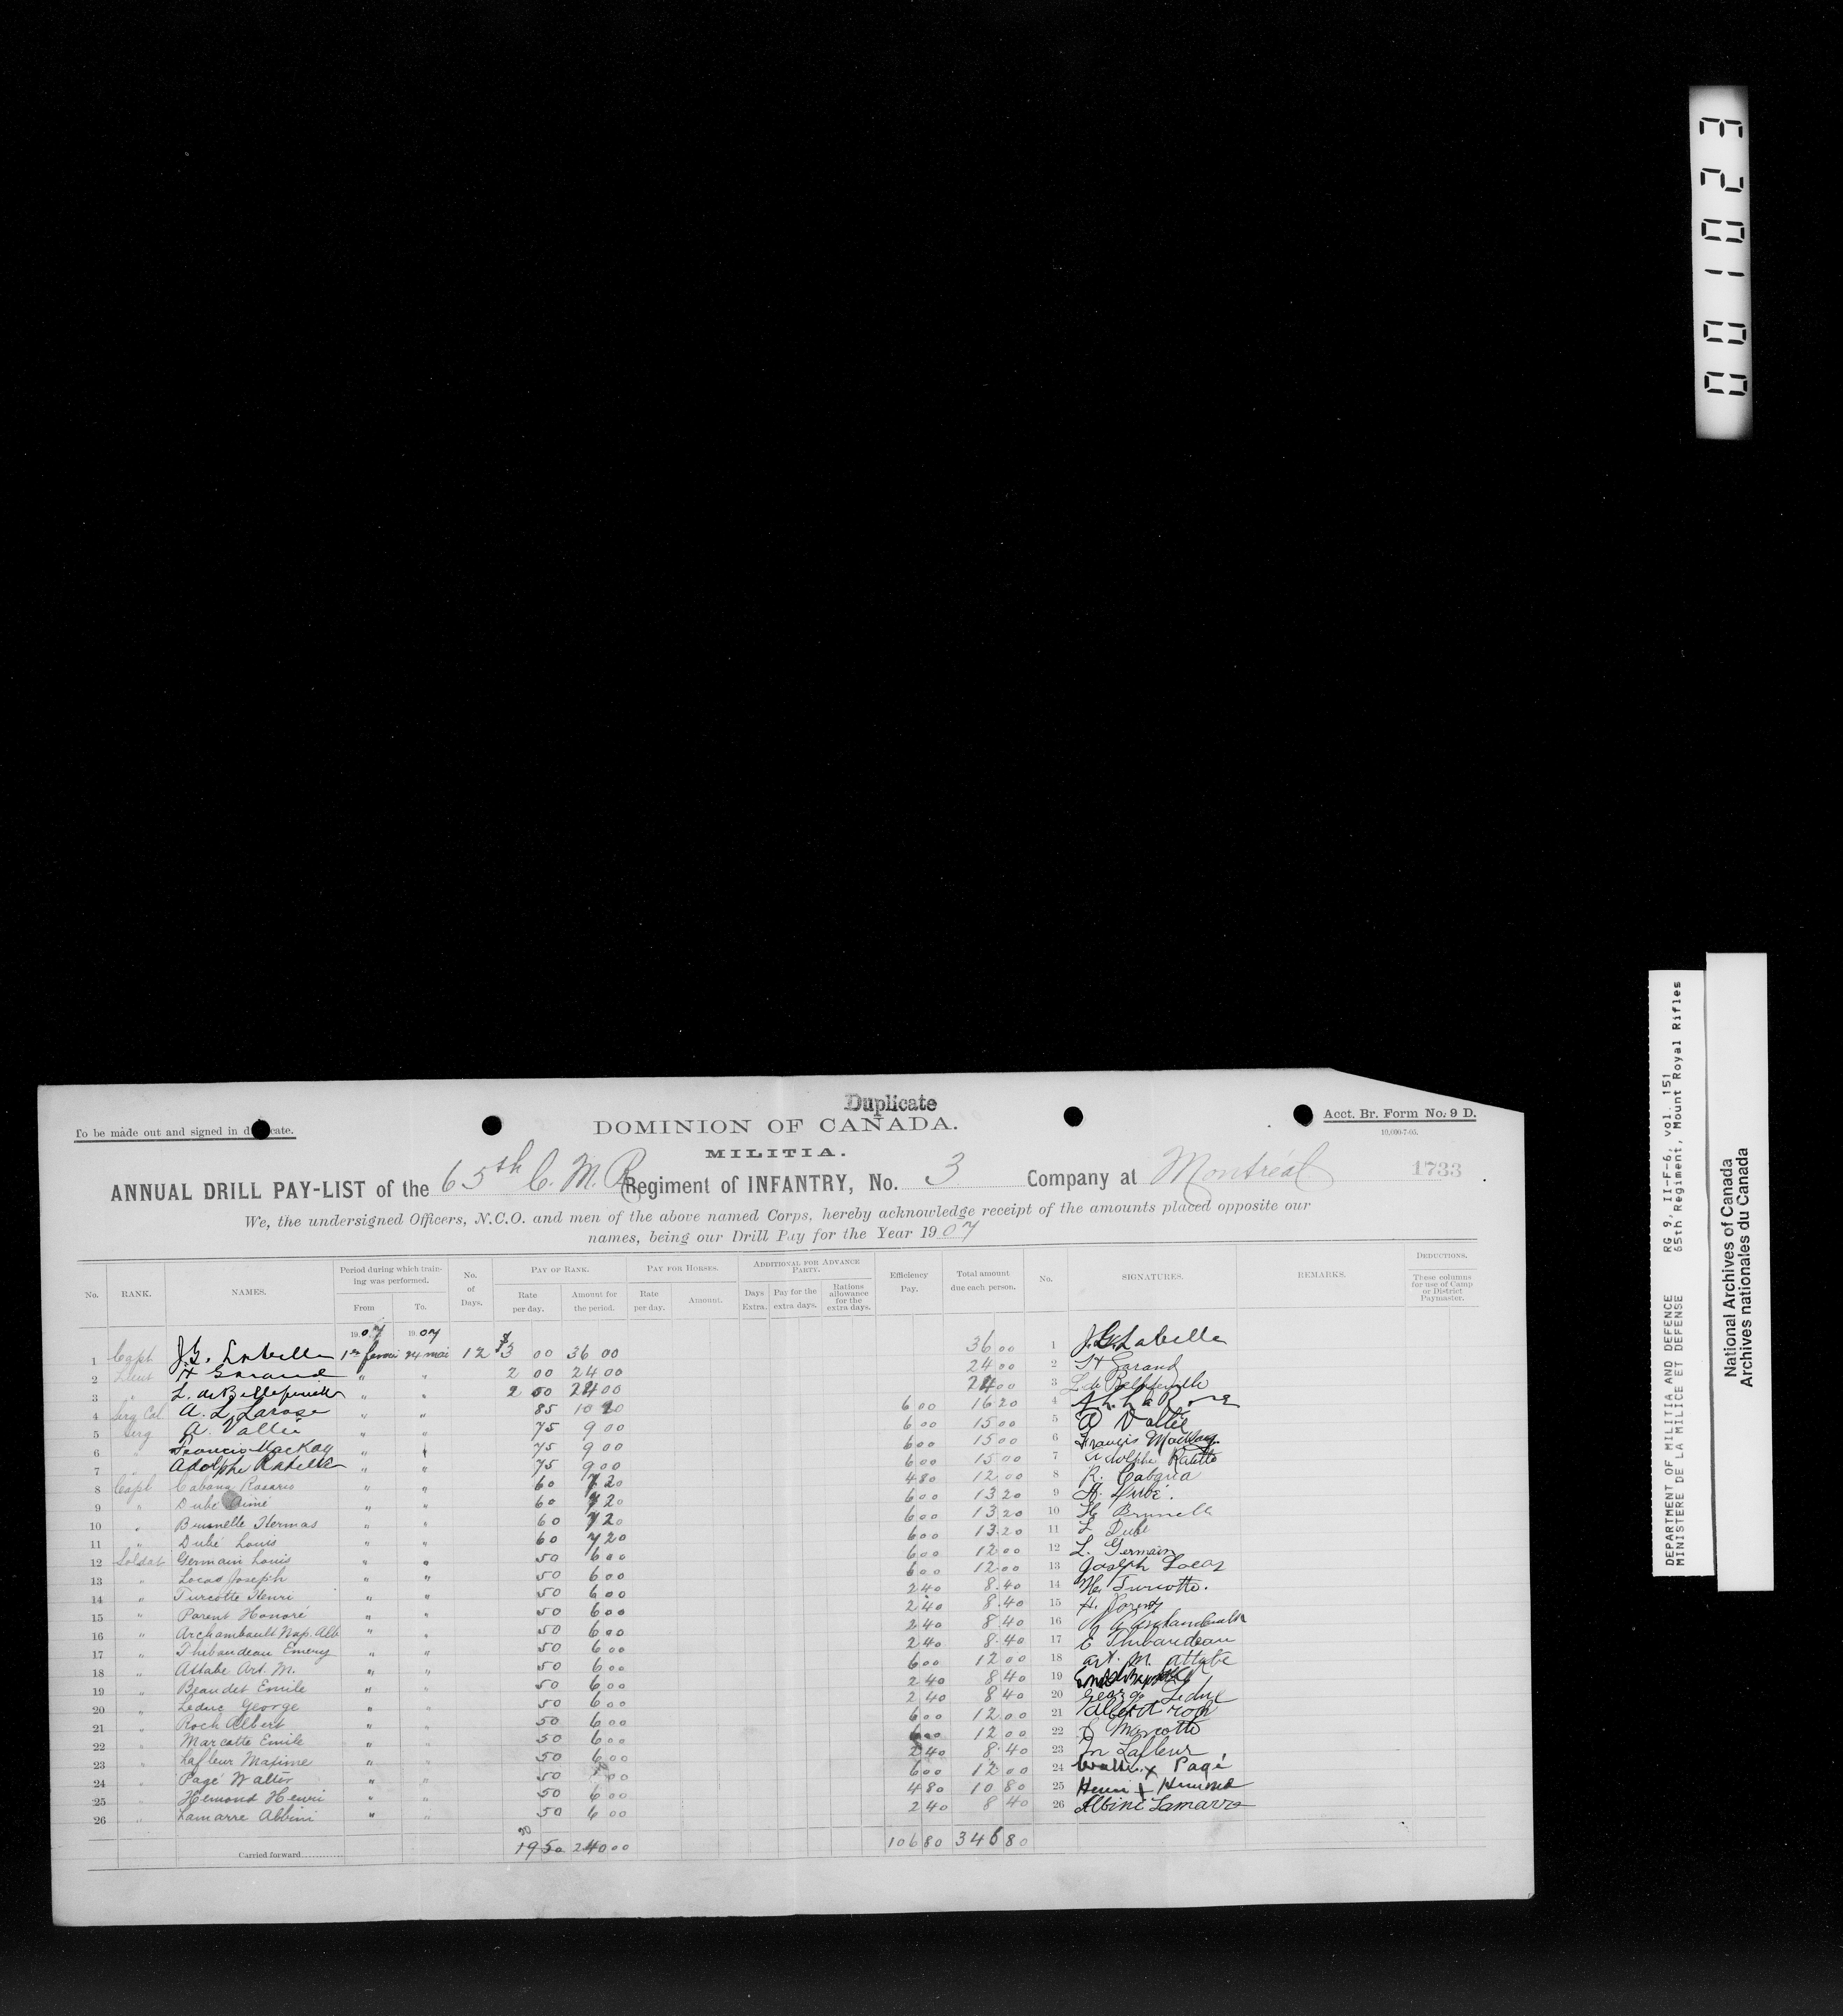 001023
DEPARTMENT OF MILITIA AND DEFENCE RG 9, II-F-6, vol. 151
MINISTERE DE LA MILICE ET DEFENSE 65th Regiment, Mount Royal Rifles
National Archives of Canada
Archives nationales du Canada
Duplicate
To be made out and signed in d cate.
DOMINION OF CANADA.
Acct. Br. Form No. 9 D.
MILITIA.
ANNUAL DRILL PAY-LIST of the 65th C. M. R. Regiment of INFANTRY, No. 3 Company at Montréal 1733
We, the undersigned Officers, N.C.O. and men of the above named Corps, hereby acknowledge receipt of the amounts placed opposite our
names, being our Drill Pay for the Year 1907
No. RANK. NAMES. Period during which training was performed. From To. No. of Days. PAY OF RANK. Rate per day. Amount for the period. PAY FOR HORSES. Rate per day. Amount. ADDITIONAL FOR ADVANCE PARTY. Days Extra. Pay for the extra days. Rations allowance for the extra days. Efficiency Pay. Total amount due each person. No. SIGNATURES. REMARKS. DEDUCTIONS. These columns for use of Camp or District Paymaster.
1907 1907
1 Capt J.G. Labelle 1er fevrier 24 mai 12 $3 00 36 00 36 00 1 J.G. Labelle
2 Lieut H Garand " " 2 00 24 00 24 00 2 H Garand
3 " L. de Bellefeuille " " 2 00 24 00 24 00 3 L de Bellefeuille
4 Serg Col A. L. Larose " " 85 10 20 6 00 16 20 4 A. L. LaRose
5 Serg A. Vallée " " 75 9 00 6 00 15 00 5 A Vallée
6 " Francis MacKay " " 75 9 00 6 00 15 00 6 Francis MacKay
7 " Adolphe Ratelle " " 75 9 00 6 00 15 00 7 Adolphe Ratelle
8 Capl Cabana Rosario " " 60 7 20 4 80 12 00 8 R. Cabana
9 " Dubé Aimé " " 60 7 20 6 00 13 20 9 A. Dubé.
10 " Brunelle Hermas " " 60 7 20 6 00 13 20 10 H. Brunelle
11 " Dubé Louis " " 60 7 20 6 00 13.20 11 L Dubé
12 Soldat Germain Louis " " 50 6 00 6 00 12 00 12 L. Germain
13 " Lucas Joseph " " 50 6 00 6 00 12.00 13 Joseph Locas
14 " Turcotte Henri " " 50 6 00 2 40 8.40 14 H. Turcotte.
15 " Parent Honoré " " 50 6 00 2 40 8.40 15 H. Parent
16 " Archambault Nap. Alb " " 50 6 00 2 40 8.40 16 N A Archambault
17 " Thibaudeau Emery " " 50 6 00 2 40 8.40 17 E Thibaudeau
18 " Attabe Art. M. " " 50 6 00 6 00 12 00 18 art. M. Attabe
19 " Beaudet Emile " " 50 6 00 2 40 8 40 19
20 " Leduc George " " 50 6 00 2 40 8 40 20 George Leduc
21 " Roch Albert " " 50 6 00 6 00 12.00 21 Albert roch
22 " Marcotte Emile " " 50 6 00 6 00 12 00 22 E Marcotte
23 " Lafleur Maxime " " 50 6 00 2 40 8.40 23 M Lafleur
24 " Pagé Walter " " 50 6 00 6 00 12 00 24 Walter x Pagé
25 " Hemond Henri " " 50 6 00 4 80 10 80 25 Henri x Hemond
26 " Lamarre Albini " " 50 6 00 2 40 8 40 26 Albini Lamarre
Carried forward 19 50 240 00 106 80 346 80